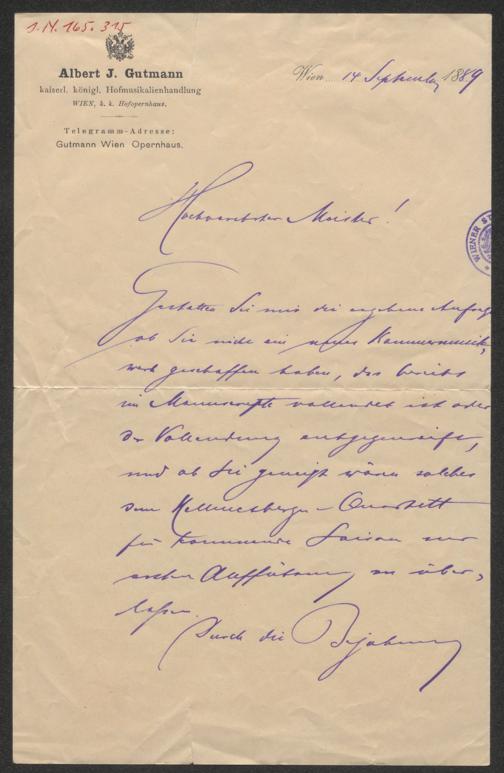 I.N. 165.315
Albert J. Gutmann
kaiserl. königl. Hofmusikalienhandlung
WIEN, k. k. Hofopernhaus.
Telegramm-Adresse:
Gutmann Wien Opernhaus.
Wien 14 September 1889
Hochverehrter Meister!
WIENER ST
Gestatten Sie mir die ergebene Anfrage
ob Sie nicht ein neues Kammermusik-
werk geschaffen haben, das bereits
im Manuscripte vollendet ist oder
der Vollendung entgegenreift,
und ob Sie geneigt wären solches
dem Hellmesberger-Quartett
für kommende Saison zur
ersten Aufführung zu über-
lassen.
Durch die Bejahung